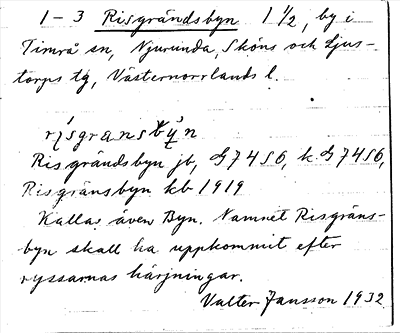 1-3 Risgrändsbyn 1 1/2, by i
Timrå sn, Njurunda, Sköns och Ljus-
torps tg, Västernorrlands l.
Risgrändsbyn jb, G7456, k. G7456,
Risgränsbyn kb 1919
Kallas även Byn. Namnet Risgräns-
byn skall ha uppkommit efter
ryssarnas härjningar.
Valter Jansson 1932